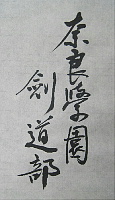 奈良學園
劍道部